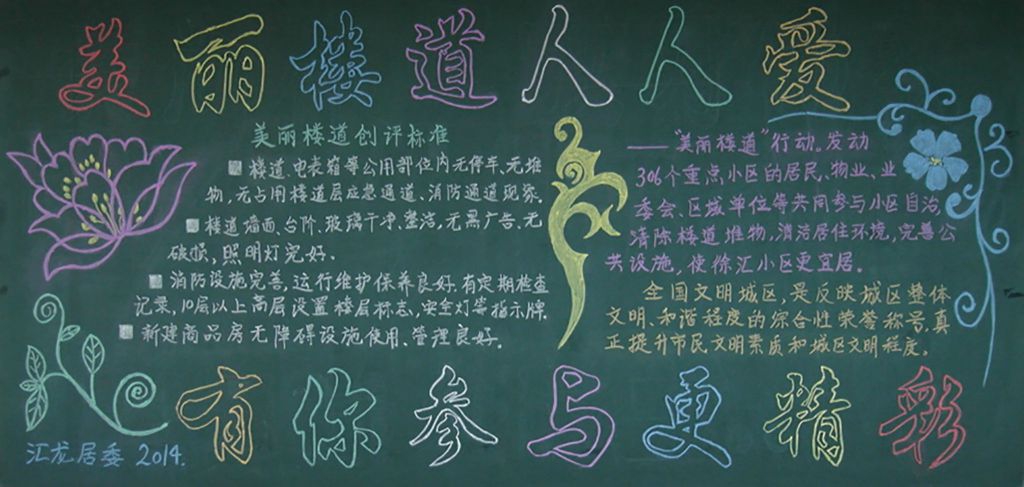 美丽楼道人人爱
美丽楼道创评标准
楼道、电表箱等公用部位内无停车、无堆
物,无占用楼道层应急通道、消防通道现象。
楼道墙面、台阶、玻璃干净、整洁,无黑广告、无
破损,照明灯完好。
消防设施完善,运行维护保养良好.有定期检查
记录,10层以上高层设置楼层标志,安全灯等指示牌.
新建商品房无障碍设施使用、管理良好。
——“美丽楼道”行动。发动
306个重点小区的居民、物业、业
委会、区域单位等共同参与小区自治,
清除楼道堆物,清洁居住环境,完善公
共设施,使徐汇小区更宜居。
全国文明城区,是反映城区整体
文明、和谐程度的综合性荣誉称号,真
正提升市民文明素质和城区文明程度。
有你参与更精彩
汇龙居委 2014.